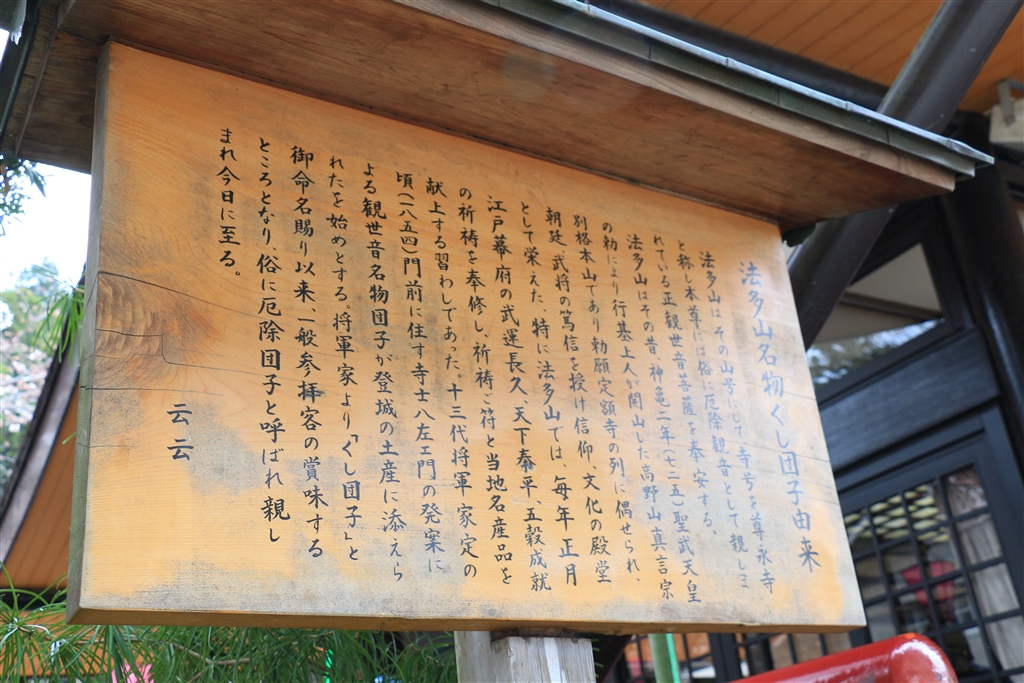 法多山名物くし団子由来
法多山はその山号にして、寺号を尊永寺
と称し本尊には俗に厄除観音として親しま
れている正観世音菩薩を奉安する。
法多山はその昔、神亀二年(七二五)聖武天皇
の勅により行基上人が開山した高野山真言宗
別格本山であり勅願定額寺の列に偶せられ、
朝廷、武将の篤信を授け信仰、文化の殿堂
として栄えた。特に法多山では、毎年正月
江戸幕府の武運長久、天下泰平、五穀成就
の祈祷を奉修し、祈祷ご符と当地名産品を
献上する習わしであった。十三代将軍家定の
頃(一八五四)門前に住す寺士八左エ門の発案に
よる観世音名物団子が登城の土産に添えら
れたを始めとする。将軍家より「くし団子」と
御命名賜り以来、一般参拝客の賞味する
ところとなり、俗に厄除団子と呼ばれ親し
まれ今日に至る。
云云